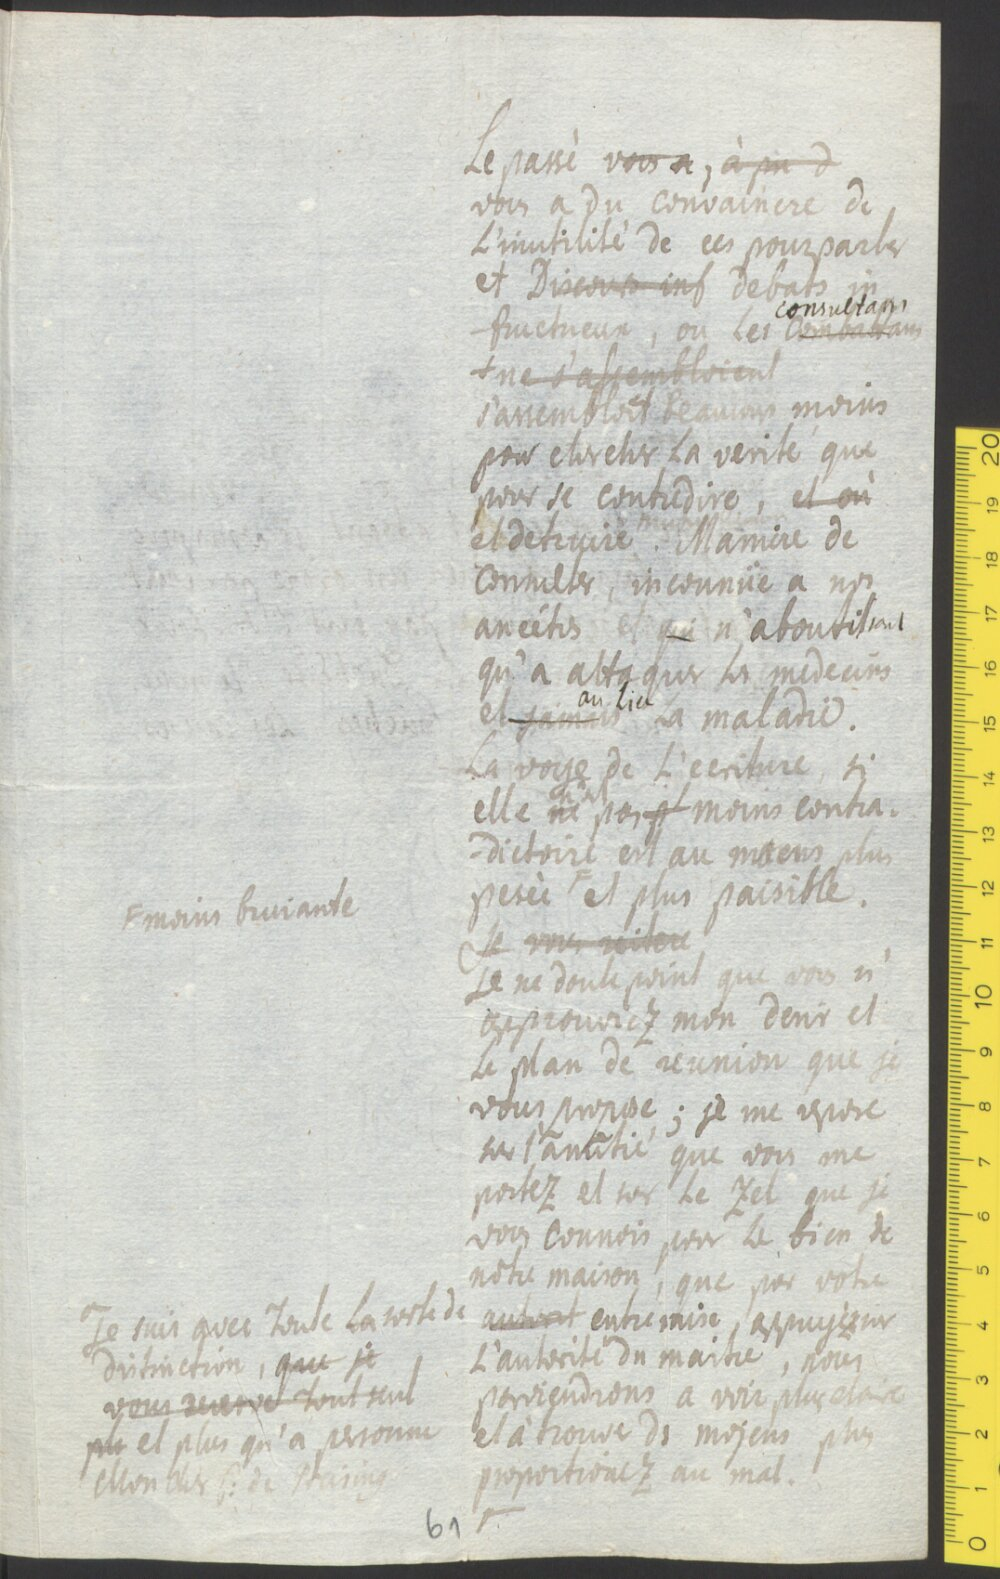 Le passé vous a, à pu d
vous a du convaincre de
L'inutilité de ces pourparler
et Discours inf debats in
fructueux, ou les combattans
consultans
ne s'assembloient
s'assembloit beaucoup moins
pour chercher La verité que
pour se contredire, et où
et detruire. Maniere de
Consulter, inconnüe a nos
ancêtres et qui n'aboutissant
qu'a attaquer les medecins
et jamais La maladie.
au lieu
La voye de L'ecriture, si
elle ne pas moins contra-
dictoire est au moiens plus
pesée F et plus paisible.
F moins bruiante
Je vous reitere
Je ne doute point que vous n'
approuviez mon desir et
Le plan de reunion que je
vous propose; je me repose
sur l'amitié que vous me
portez et sur Le Zel que je
vous connois pour Le bien de
nôtre maison, que par votre
entremise, appuyé sur
L'autorité du maitre, nous
parviendrons a voir plus claire
et à trouver ds mojens plus
proportionez au mal.
Je suis avec Toute La sorte de
distinction, que je
vous reserve tout seul
plu et plus qu'a personne
Mon cher
61
0
1
2
3
4
5
6
7
8
9
10
11
12
13
14
15
16
17
18
19
20